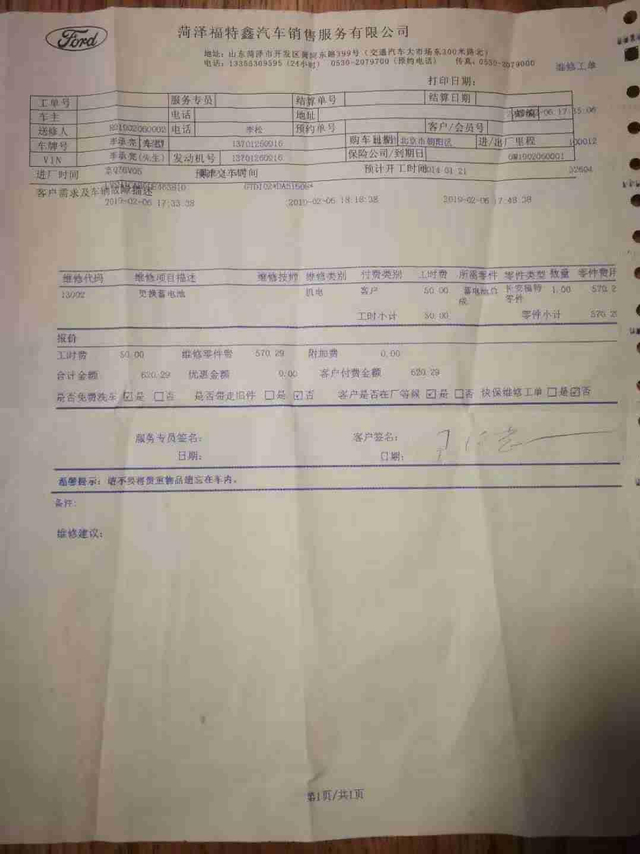 Ford
菏泽福特鑫汽车销售服务有限公司
地址:山东菏泽市开发区黄河东路399号(交通汽车大市场东300米路北)
电话:13355309595(24小时) 0530-2079700(预约电话) 传真:0530-2079000
维修工单
打印日期:
工单号 服务专员 结算单号 结算日期
车主 电话 地址
送修人 电话 李松 预约单号 客户/会员号
车牌号 车型 13701260910 购车日期 北京市朝阳区 进/出厂里程
VIN 发动机号 13701260910 保险公司/到期日
进厂时间 预计交车时间 预计开工时间
客户需求及车辆故障描述
2019-02-06 17:33:38 2019-02-06 18:16:38 2019-02-06 17:46:38
维修代码 维修项目描述 维修技师 维修类别 付费类别 工时费 所需零件 零件类型 数量 零件费
13002 更换蓄电池 机电 客户 50.00 蓄电池总成 长安福特零件 1.00 570.2
工时小计 50.00 零件小计 570.2
报价
工时费 50.00 维修零件费 570.29 附加费 0.00
合计金额 620.29 优惠金额 0.00 客户付费金额 620.29
是否免费洗车 ☑是 □否 是否带走旧件 □是 ☑否 客户是否在厂等候 ☑是 □否 快保维修工单 □是 ☑否
服务专员签名: 客户签名:
日期: 日期:
温馨提示:请不要将贵重物品遗忘在车内。
备件:
维修建议:
第1页/共1页